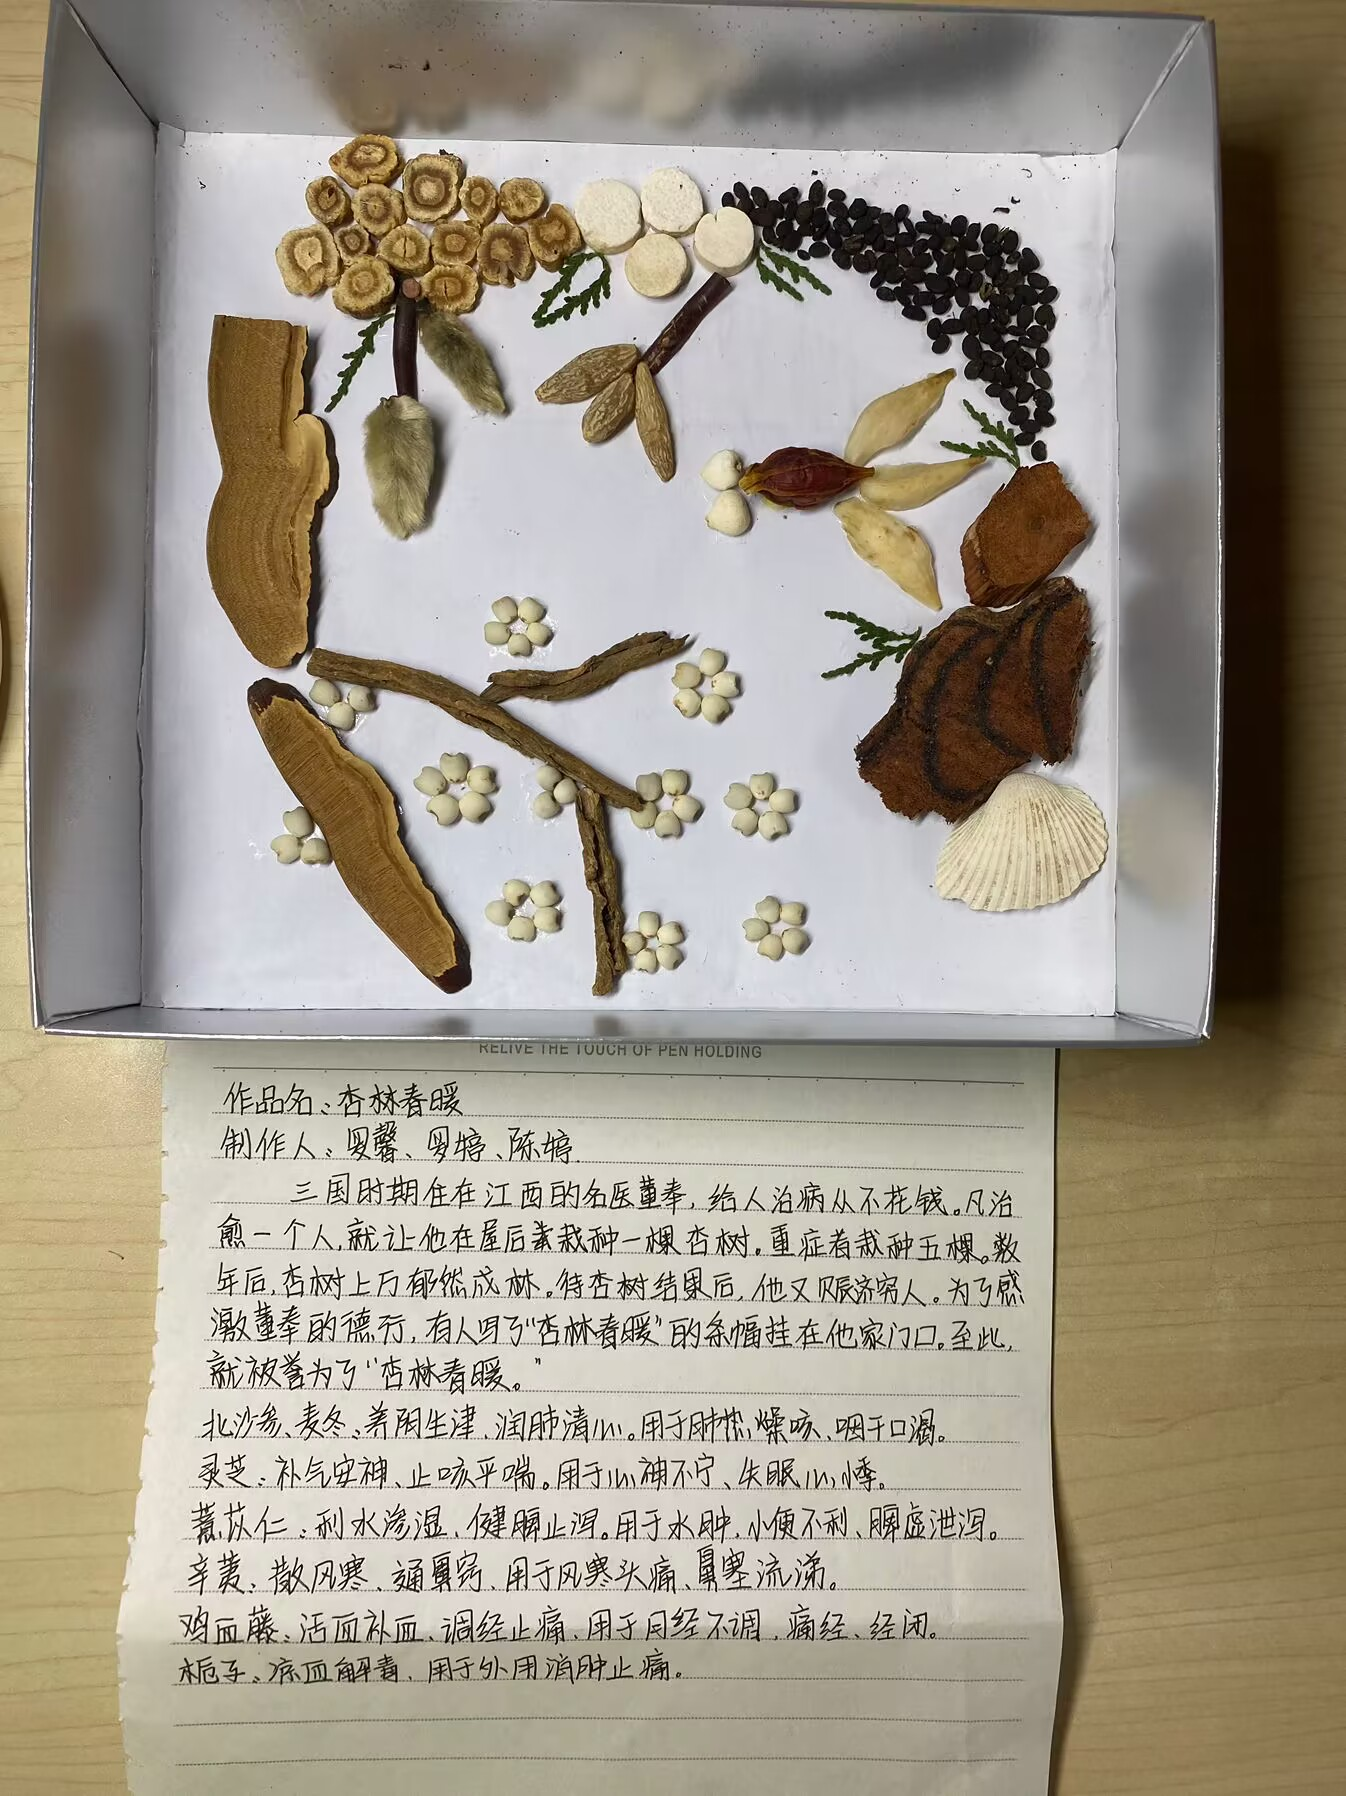 RELIVE THE TOUCH OF PEN HOLDING
作品名：杏林春暖
制作人：馨、婷、陈婷
三国时期住在江西的名医董奉，给人治病从不花钱。凡治
愈一个人，就让他在屋后栽种一棵杏树。重症者栽种五棵。数
年后，杏树上万郁然成林。待杏树结果后，他又赈济穷人。为了感
激董奉的德行，有人写了“杏林春暖”的条幅挂在他家门口。至此，
就被誉为了“杏林春暖。”
北沙参、麦冬：养阴生津、润肺清心。用于肺热燥咳、咽干口渴。
灵芝：补气安神、止咳平喘。用于心神不宁、失眠心悸。
薏苡仁：利水渗湿、健脾止泻。用于水肿，小便不利、脾虚泄泻。
辛荑：散风寒、通鼻窍、用于风寒头痛、鼻塞流涕。
鸡血藤：活血补血、调经止痛、用于月经不调，痛经、经闭。
栀子：凉血解毒、用于外用消肿止痛。